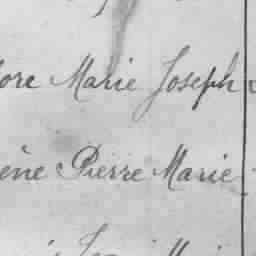 ore Marie Joseph
ène Pierre Marie